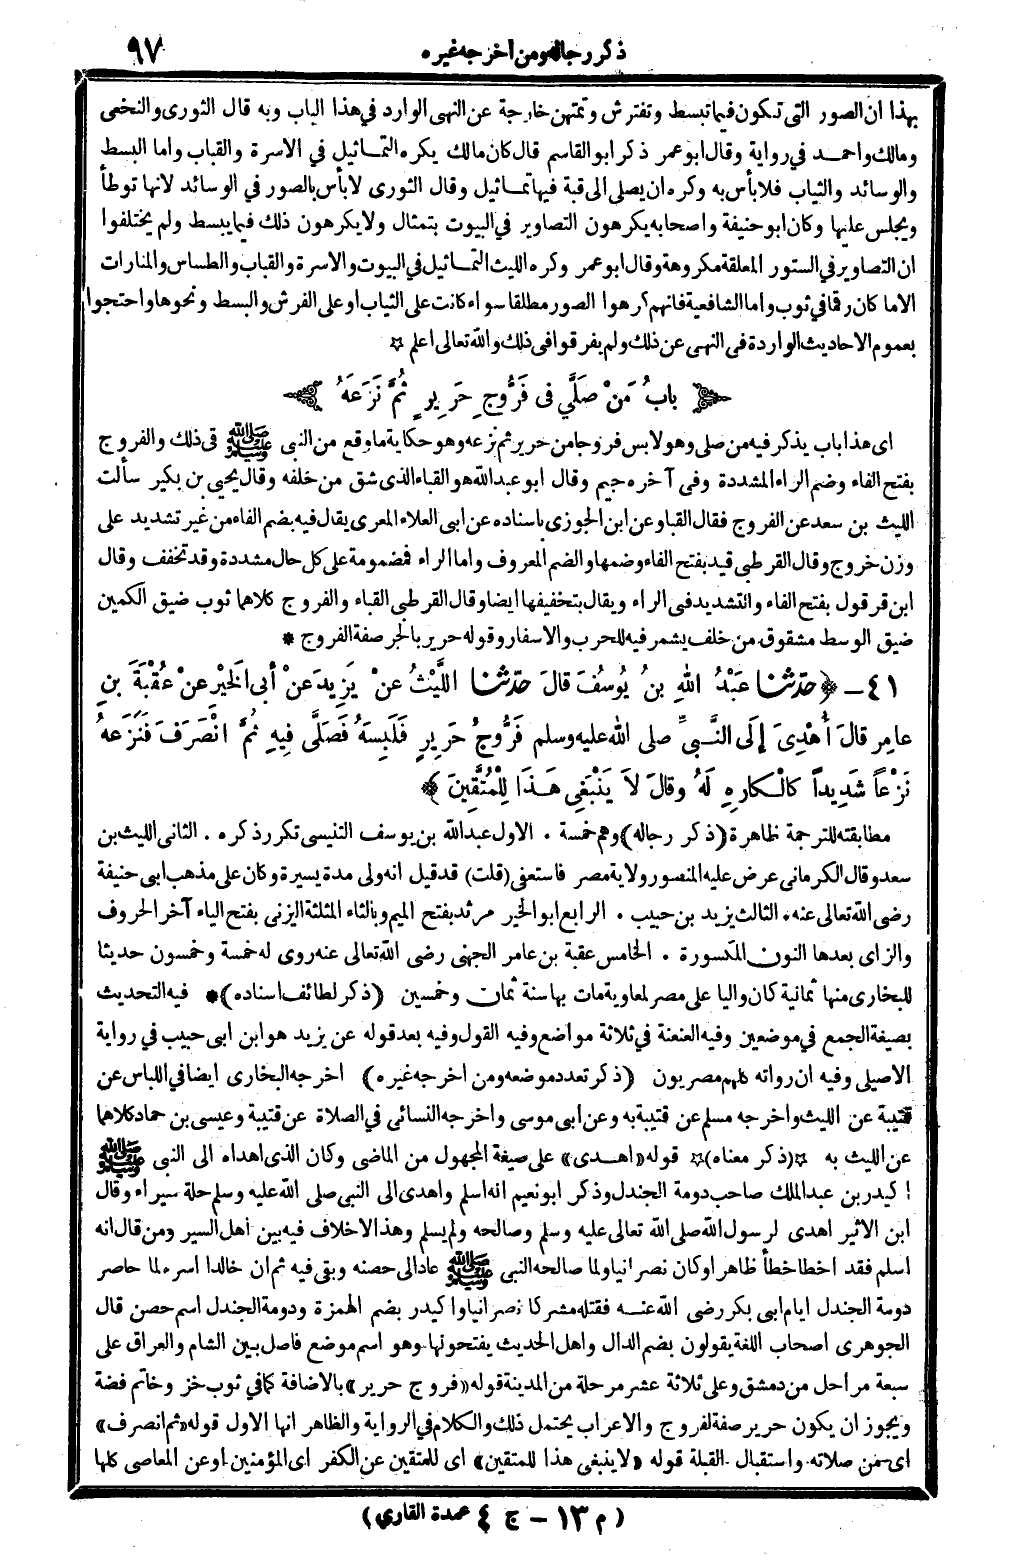 ذكر رجاله ومن اخرجه غيره ٩٧
بهذا ان الصور التى تكون فيما تبسط وتفترش وتمتهن خارجة عن النهى الوارد في هذا الباب وبه قال الثورى والنخعى
ومالك واحمد في رواية وقال ابو عمر ذكر ابو القاسم قال كان مالك يكره التماثيل في الاسرة والقباب واما البسط
والوسائد والثياب فلا بأس به وكره ان يصلى الى قبة فيها تماثيل وقال الثورى لا بأس بالصور في الوسائد لانها توطأ
ويجلس عليها وكان ابو حنيفة واصحابه يكرهون التصاوير في البيوت بتمثال ولا يكرهون ذلك فيما يبسط ولم يختلفوا
ان التصاوير في الستور المعلقة مكروهة وقال ابو عمر وكره الليث التماثيل في البيوت والاسرة والقباب والطساس والمنارات
الاما كان رقما في ثوب واما الشافعية فانهم كرهوا الصور مطلقا سواء كانت على الثياب او على الفرش والبسط ونحوها واحتجوا
بعموم الاحاديث الواردة فى النهى عن ذلك ولم يفرقوا فى ذلك والله تعالى اعلم ☆
﴿ بابُ مَنْ صَلَّي فى فَرُّوجِ حَرِيرٍ ثُمَّ نَزَعَهُ ﴾
اى هذا باب يذكر فيه من صلى وهو لابس فروجا من حرير ثم نزعه وهو حكاية ما وقع من النبى ﷺ فى ذلك والفروج
بفتح الفاء وضم الراء المشددة وفى آخره جيم وقال ابو عبدالله هو القباء الذى شق من خلفه وقال يحيى بن بكير سألت
الليث بن سعد عن الفروج فقال القبا وعن ابن الجوزى باسناده عن ابى العلاء المعرى يقال فيه بضم الفاء من غير تشديد على
وزن خروج وقال القرطبى قيد بفتح الفاء وضمها والضم المعروف واما الراء فمضمومة على كل حال مشددة وقد تخفف وقال
ابن قرقول بفتح الفاء والتشديد فى الراء ويقال بتخفيفها ايضا وقال القرطبى القباء والفروج كلاهما ثوب ضيق الكمين
ضيق الوسط مشقوق من خلف يشمر فيه للحرب والاسفار وقوله حرير بالجر صفة الفروج *
٤١ - ﴿ حدّثنا عَبْدُ اللهِ بنُ يُوسُفَ قالَ حدّثنا اللَّيْثُ عنْ يَزِيدَ عنْ أبى الخَيْرِ عنْ عُقْبَةَ بنِ
عامِرٍ قالَ أُهْدِىَ إلَى النَّبيِّ صلى الله عليه وسلم فَرُّوجُ حَرِيرٍ فَلَبِسَهُ فَصَلَّى فِيهِ ثُمَّ انْصَرَفَ فَنَزَعَهُ
نَزْعاً شَدِيداً كالْكارِهِ لَهُ وقالَ لاَ يَنْبَغِى هَذَا لِلْمُتَّقِينَ ﴾
مطابقته للترجمة ظاهرة (ذكر رجاله) وهم خمسة . الاول عبدالله بن يوسف التنيسى تكرر ذكره . الثانى الليث بن
سعد وقال الكرمانى عرض عليه المنصور ولاية مصر فاستعفى (قلت) قد قيل انه ولى مدة يسيرة وكان على مذهب ابى حنيفة
رضى الله تعالى عنه . الثالث يزيد بن حبيب . الرابع ابو الخير مرثد بفتح الميم وبالثاء المثلثة اليزنى بفتح الياء آخر الحروف
والزاى بعدها النون المكسورة . الخامس عقبة بن عامر الجهنى رضى الله تعالى عنه روى له خمسة وخمسون حديثا
للبخارى منها ثمانية كان واليا على مصر لمعاوية مات بها سنة ثمان وخمسين (ذكر لطائف اسناده) * فيه التحديث
بصيغة الجمع في موضعين وفيه العنعنة في ثلاثة مواضع وفيه القول وفيه بعد قوله عن يزيد هو ابن ابى حبيب في رواية
الاصيلى وفيه ان رواته كلهم مصريون (ذكر تعدد موضعه ومن اخرجه غيره) اخرجه البخارى ايضا في اللباس عن
قتيبة عن الليث واخرجه مسلم عن قتيبة به وعن ابى موسى واخرجه النسائى في الصلاة عن قتيبة وعيسى بن حماد كلاهما
عن الليث به ☆ (ذكر معناه) ☆ قوله «اهدى» على صيغة المجهول من الماضى وكان الذى اهداه الى النبى ﷺ
اكيدر بن عبد الملك صاحب دومة الجندل وذكر ابو نعيم انه اسلم واهدى الى النبى صلى الله عليه وسلم حلة سيراء وقال
ابن الاثير اهدى لرسول الله صلى الله تعالى عليه وسلم وصالحه ولم يسلم وهذا لاخلاف فيه بين أهل السير ومن قال انه
اسلم فقد اخطا خطأ ظاهرا وكان نصرانيا ولما صالحه النبى ﷺ عاد الى حصنه وبقى فيه ثم ان خالدا اسره لما حاصر
دومة الجندل ايام ابى بكر رضى الله عنه فقتله مشركا نصرانيا واكيدر بضم الهمزة ودومة الجندل اسم حصن قال
الجوهرى اصحاب اللغة يقولون بضم الدال واهل الحديث يفتحونها وهو اسم موضع فاصل بين الشام والعراق على
سبعة مراحل من دمشق وعلى ثلاثة عشر مرحلة من المدينة قوله «فروج حرير» بالاضافة كما في ثوب خز وخاتم فضة
ويجوز ان يكون حرير صفة لفروج والاعراب يحتمل ذلك والكلام في الرواية والظاهر انها الاول قوله «ثم انصرف»
اى من صلاته واستقبال القبلة قوله «لا ينبغى هذا للمتقين» اى للمتقين عن الكفر اى المؤمنين او عن المعاصى كلها
(م ١٣ - ج ٤ عمدة القاري)